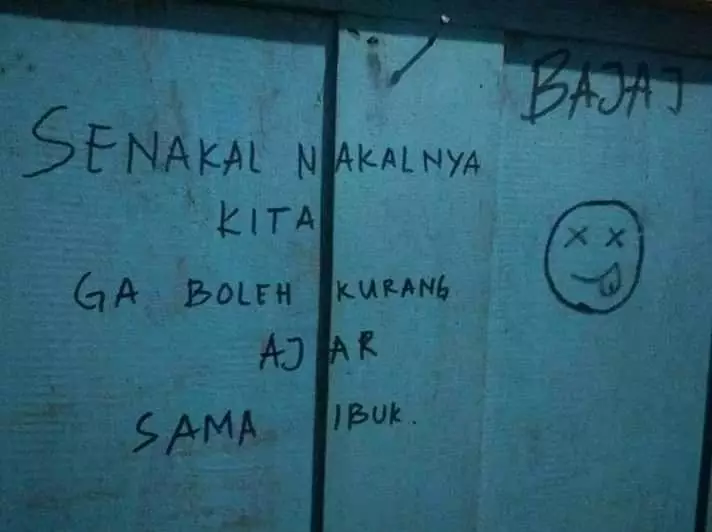 BAJAJ
SENAKAL NAKALNYA
KITA
GA BOLEH KURANG
AJAR
SAMA IBUK.